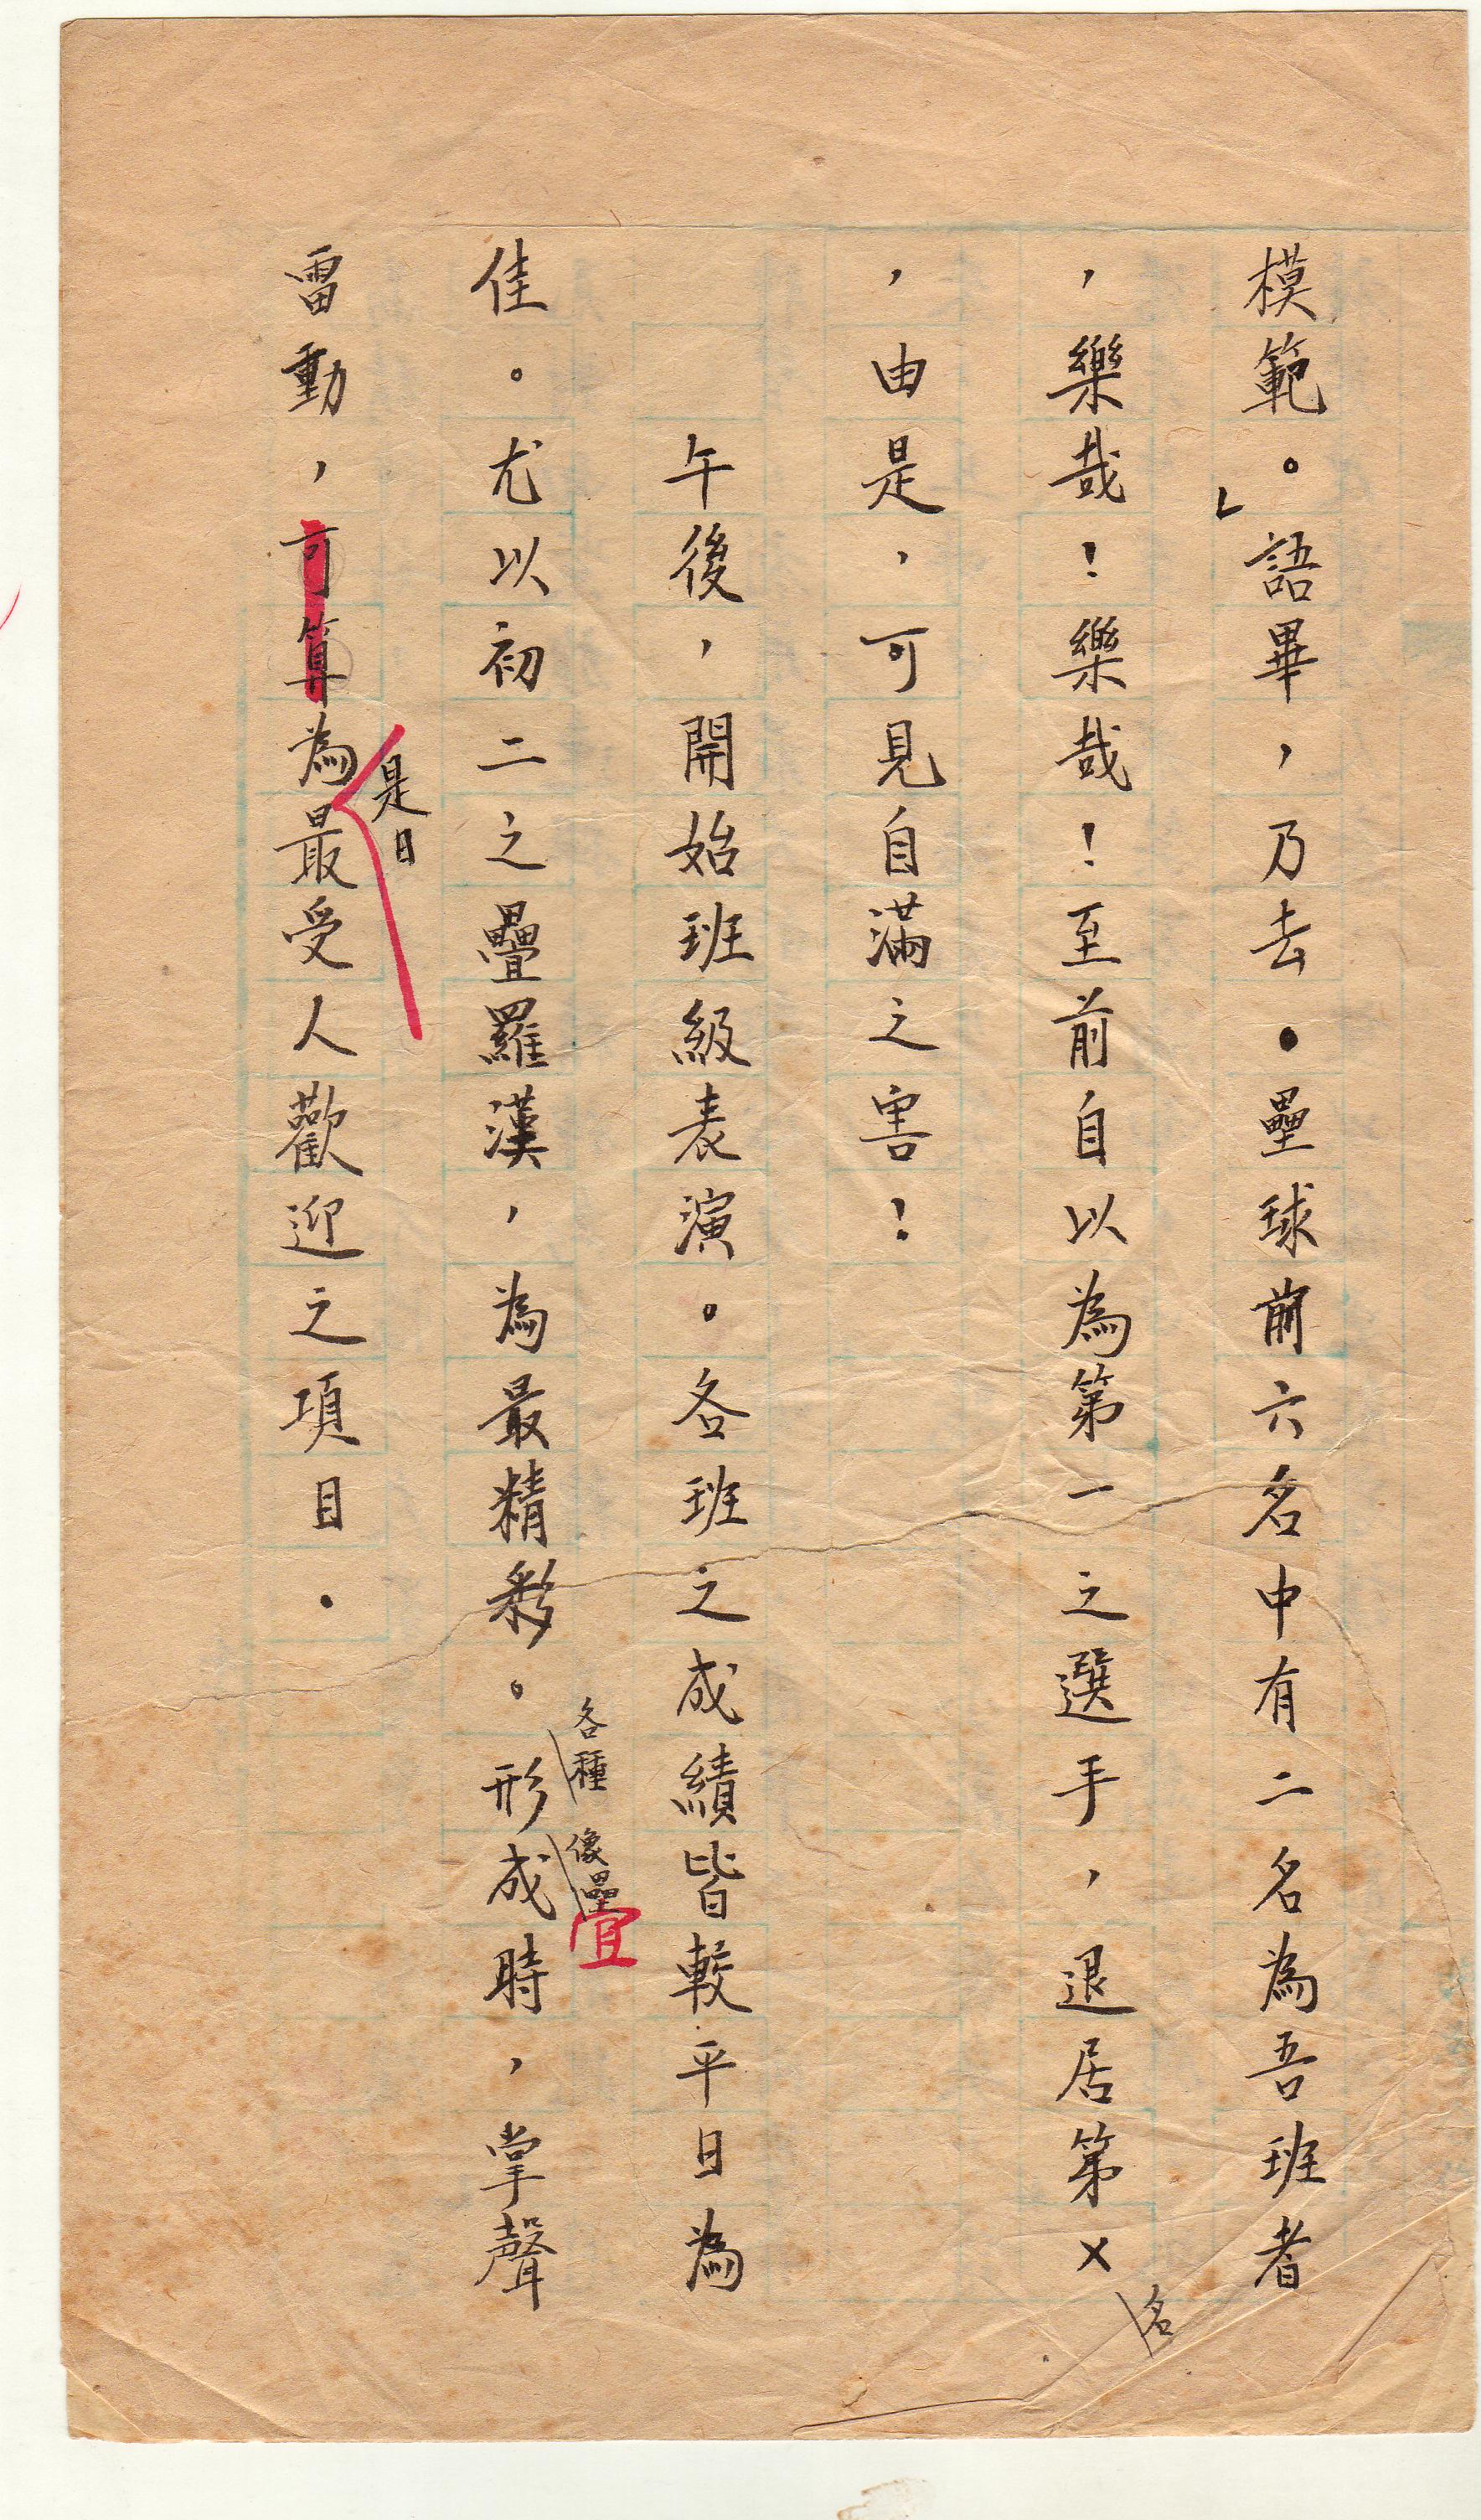 模範。」語畢，乃去．壘球前六名中有二名為吾班者
，樂哉！樂哉！至前自以為第一之選手，退居第×名
，由是，可見自滿之害！
午後，開始班級表演。各班之成績皆較平日為
佳。尤以初二之疊羅漢，為最精彩。各種形像壘宜成時，掌聲
雷動，可算為是日最受人歡迎之項目．